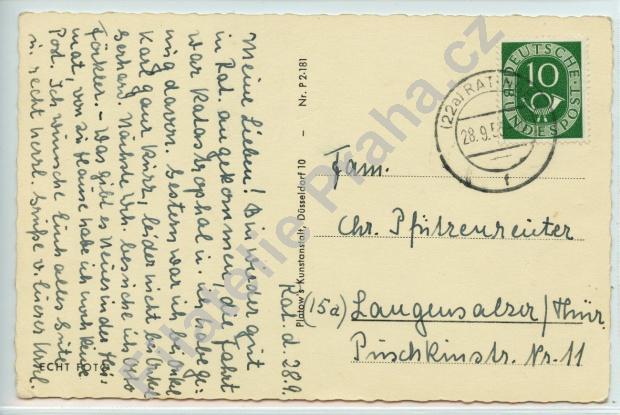 Rat. d. 28.9.
Meine Lieben! Bin wieder gut
in Rat. angekommen, die Fahrt
war katastrophal u. ich habe ge-
nug davon. Gestern war ich bei Onkel
Karl ganz kurz, leider nicht bei Onkel
Gerhard. Nächste Wch. besuche ich Otto
Was gibt es Neues in der Hei-
mat, von zu Hause habe ich noch keine
Post. Ich wünsche Euch alles Gute
u. recht herzl. Grüße v. Eurer
ECHT FOTO
Platow's Kunstanstalt, Düsseldorf 10 – Nr. P 2-181
DEUTSCHE
BUNDESPOST
10
(22a) RAT
28.9.5
f
Fam.
Chr. Pfützenreuter
(15a) Langensalza/Thür.
Puschkinstr. Nr. 11
Filatelie Praha.cz